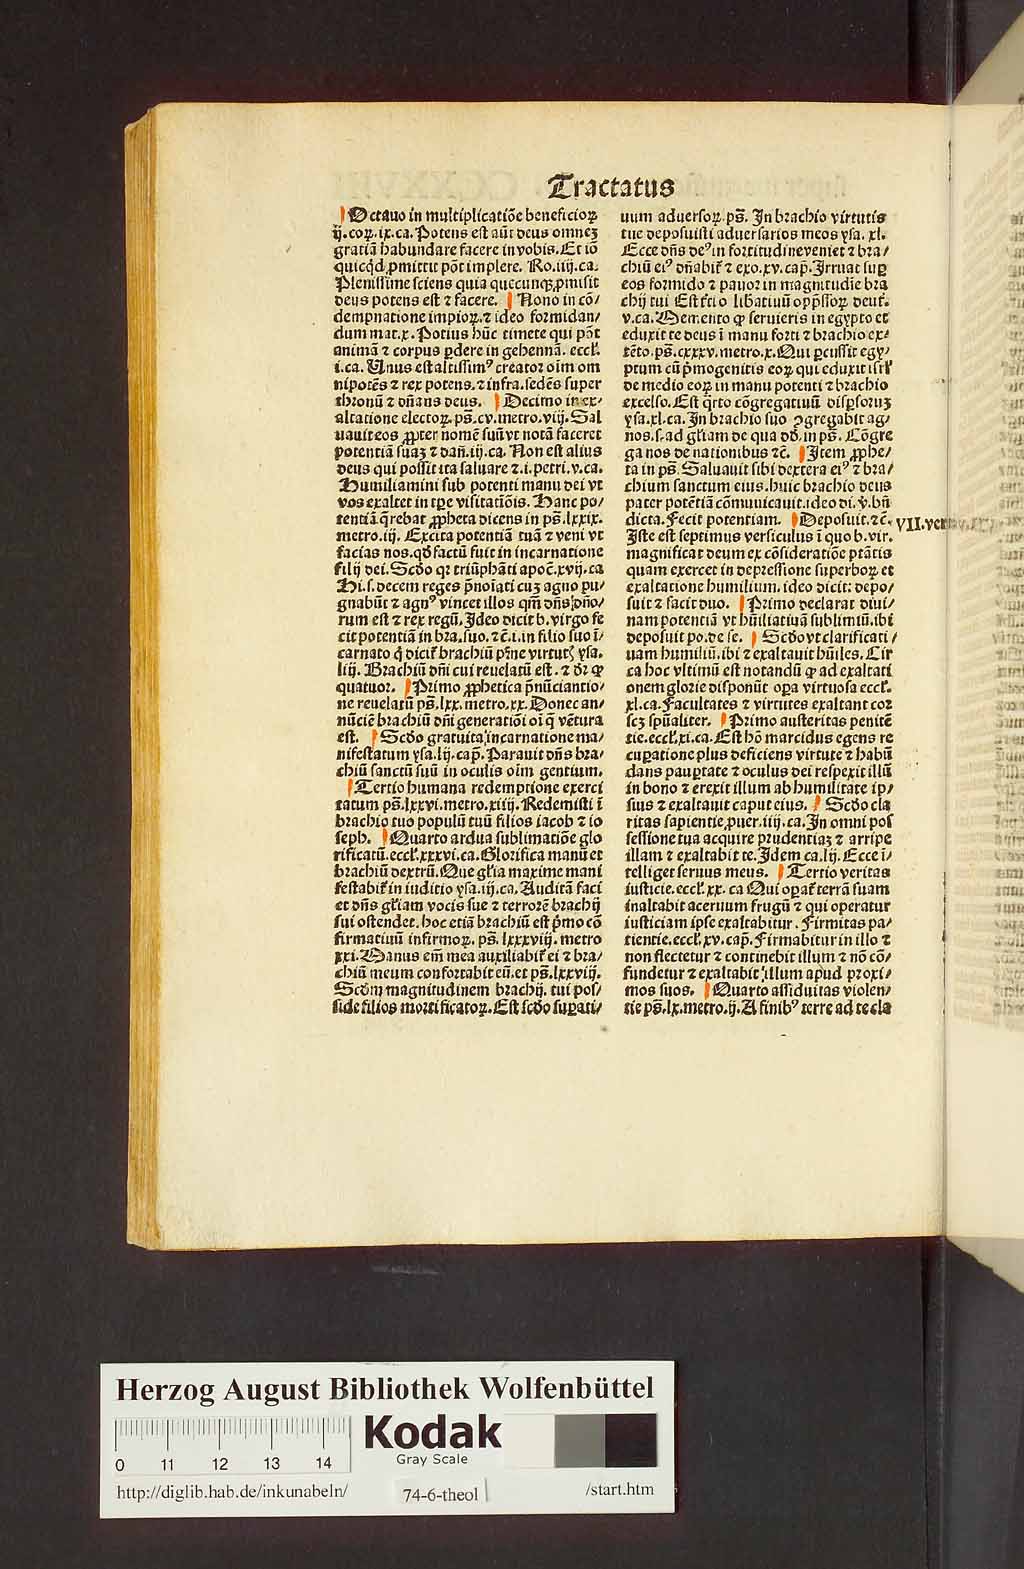 Tractatus
Octauo in multiplicatiōe beneficioꝝ
ij.coꝝ.ix.ca. Potens est aūt deus omneꝫ
gratiā habundare facere in vobis. Et iō
quicqͥd ꝓmittit pōt implere. Ro.iiij.ca.
Plenissime sciens quia quecunqꝫ ꝓmisit
deus potens est ⁊ facere. Nono in cō/
dempnatione impioꝝ. ⁊ ideo formidan/
dum mat.x. Potius hūc timete qui pōt
animā ⁊ corpus ꝑdere in gehennā. eccl'.
i.ca. Unus est altissim⁹ creator oīm om
nipotēs ⁊ rex potens. ⁊ infra. sedēs super
thronū ⁊ dn̄ans deus. Decimo in ex/
altatione electoꝝ. ps̄.cv.metro.viij. Sal
uauit eos ꝓpter nomē suū vt notā faceret
potentiā suaꝫ ⁊ dan̄.iij.ca. Non est alius
deus qui possit ita saluare ⁊.i.petri.v.ca.
Humiliamini sub potenti manu dei vt
vos exaltet in tꝑe visitatiōis. Hanc po/
tentiā q̄rebat ꝓpheta dicens in ps̄.lxxix.
metro.iij. Excita potentiā tuā ⁊ veni vt
facias nos. qd̓ factū fuit in incarnatione
filij dei. Scd̓o qꝛ triūphāti apoc̄.xvij.ca
Hi.s.decem reges p̄noīati cuꝫ agno pu/
gnabūt ⁊ agn⁹ vincet illos qm̄ dn̄s dn̄o/
rum est ⁊ rex regū. Ideo dicit b. virgo fe
cit potentiā in bra. suo. ⁊c̄.i. in filio suo ī/
carnato q̄ dicit' brachiū pr̄ne virtutꝭ ysa.
liij. Brachiū dn̄i cui reuelatū est. ⁊ dr̄ ꝙ
quatuor. Primo ꝓphetica p̄nūciantio/
ne reuelatū ps̄.lxx.metro.xx. Donec an/
nūciē brachiū dn̄i generatiōi oī q̄ vētura
est. Scd̓o gratuita incarnatione ma/
nifestatum ysa.lij.cap̄. Parauit dn̄s bra/
chiū sanctū suū in oculis oīm gentium.
Tertio humana redemptione exerci
tatum ps̄.lxxvi.metro.xiiij. Redemisti ī
brachio tuo populū tuū filios iacob ⁊ io
seph. Quarto ardua sublimatiōe glo
rificatū.eccl'.xxxvi.ca. Glorifica manū et
brachiū dextrū. Que gl'ia maxime mani
festabit' in iuditio ysa.iij.ca. Auditā faci
et dn̄s gl'iam vocis sue ⁊ terrorē brachij
sui ostendet. hoc etiā brachiū est p̄mo cō
firmatiuū infirmoꝝ. ps̄.lxxxviij. metro
xxi. Manus em̄ mea auxiliabit' ei ⁊ bra/
chiū meum confortabit eū. et ps̄.lxxviij.
Scd̓m magnitudinem brachij. tui pos/
side filios mortificatoꝝ. Est scd̓o suꝑati/
uum aduersoꝝ ps̄. In brachio virtutis
tue deposuisti aduersarios meos ysa.xl.
Ecce dn̄s de⁹ in fortitudine veniet ⁊ bra/
chiū ei⁹ dn̄abit' ⁊ exo.xv.cap̄. Irruat suꝑ
eos formido ⁊ pauor in magnitudīe bra
chij tui Est t̓tio libatiuū opp̄ssioꝝ deut'.
v.ca. Memento ꝙ seruieris in egypto et
eduxit te deus ī manu forti ⁊ brachio ex/
tēto. ps̄.cxxxv.metro.x. Qui ꝑcussit egy/
ptum cū p̄mogenitis eoꝝ qui eduxit isrl'
de medio eoꝝ in manu potenti ⁊ brachio
excelso. Est q̄rto cōgregatiuū disꝑsoruꝫ
ysa.xl.ca. In brachio suo ꝯgregabit ag/
nos.s. ad gl'iam de qua dd̓. in ps̄. Cōgre
ga nos de nationibus ⁊c̄. Item ꝓphe/
ta in ps̄. Saluauit sibi dextera ei⁹ ⁊ bra/
chium sanctum eius. huic brachio deus
pater potētiā cōmunicauit. ideo di. v̄. bn̄
dicta. Fecit potentiam. Deposuit. ⁊c̄.
VII.ver
Iste est septimus versiculus ī quo b. vir.
magnificat deum ex cōsideratiōe ptātis
quam exercet in depressione superboꝝ et
exaltatione humilium. ideo dicit: depo/
suit ⁊ facit duo. Primo declarat diui/
nam potentiā vt hūiliatiuā sublimiū. ibi
deposuit po. de se. Scd̓o vt clarificati/
uam humiliū. ibi ⁊ exaltauit hūiles. Cir
ca hoc vltimū est notandū ꝙ ad exaltati
onem glorie disponūt oꝑa virtuosa eccl'.
xl.ca. Facultates ⁊ virtutes exaltant cor
scꝫ spūaliter. Primo austeritas penitē
tie. eccl'.xi.ca. Est hō marcidus egens re
cuꝑatione plus deficiens virtute ⁊ habū
dans pauꝑtate ⁊ oculus dei respexit illū
in bono ⁊ erexit illum ab humilitate ip/
sius ⁊ exaltauit caput eius. Scd̓o cla
ritas sapientie. ꝓuer.iiij.ca. In omni pos
sessione tua acquire prudentiaꝫ ⁊ arripe
illam ⁊ exaltabit te. Idem ca.lij. Ecce ī/
telliget seruus meus. Tertio veritas
iusticie. eccl'.xx.ca Qui oꝑat' terrā suam
inaltabit aceruum frugū ⁊ qui operatur
iusticiam ipse exaltabitur. Firmitas pa/
tientie. eccl'.xv.cap̄. Firmabitur in illo ⁊
non flectetur ⁊ continebit illum ⁊ nō cō/
fundetur ⁊ exaltabit illum apud proxi/
mos suos. Quarto assiduitas violen/
tie ps̄.lx.metro.ij. A finib⁹ terre ad te cla
Herzog August Bibliothek Wolfenbüttel
Kodak
Gray Scale
0 11 12 13 14
http://diglib.hab.de/inkunabeln/
74-6-theol
/start.htm